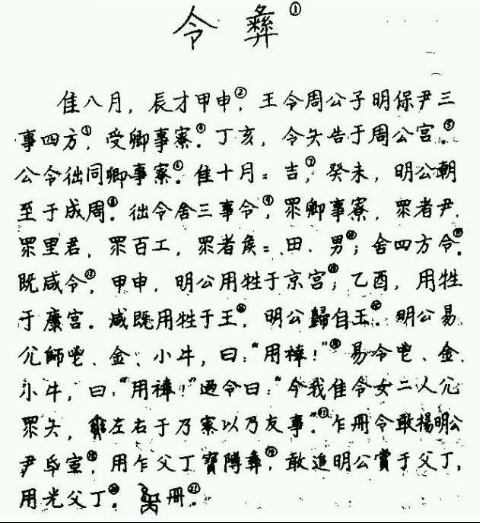 令彝①
隹八月，辰才甲申②，王令周公子明保尹三
事四方③，受卿事寮④。丁亥，令夨告于周公宫⑤。
公令𢓊同卿事寮⑥。隹十月=吉⑦，癸未，明公朝
至于成周⑧。𢓊令舍三事令⑨，眔卿事寮，眔者尹，
眔里君，眔百工，眔者矦=田、男⑩；舍四方令⑪。
既咸令⑫，甲申，明公用牲于京宫⑬；乙酉，用牲
于康宫。咸既用牲于王⑭，明公歸自王⑮。明公易
亢師鬯、金、小牛，曰：“用𥛱！”⑯易令鬯、金、
小牛，曰：“用𥛱！”廼令曰：“今我隹令女二人亢
眔夨，奭左右于乃寮以乃友事。”⑰乍册令敢揚明公
尹氒室⑱，用乍父丁寶𨻰彝⑲，敢追明公賞于父丁，
用光父丁⑳。册㉑。